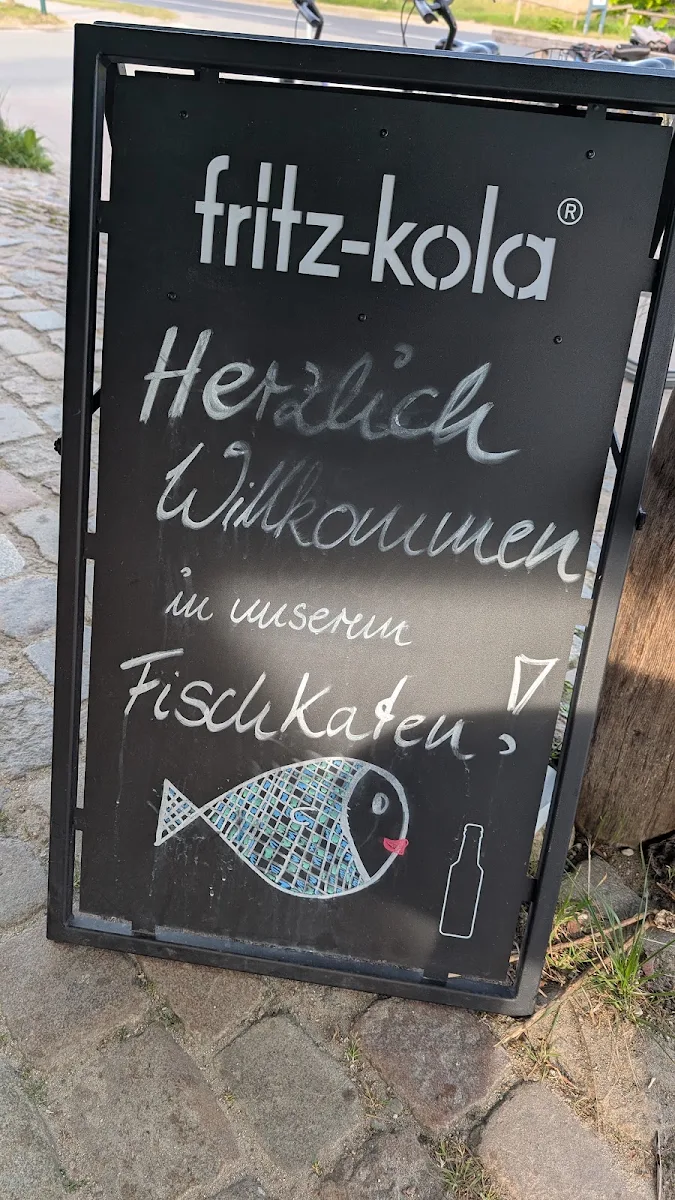 fritz-kola®
Herzlich
Willkommen
in unserem
FischKaten!